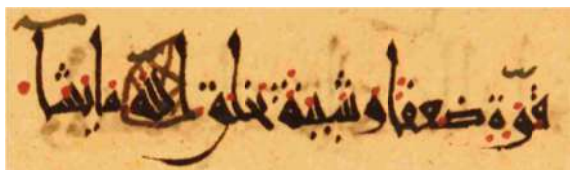 قوة ضعفا وشيبة يخلق الله ما يشا